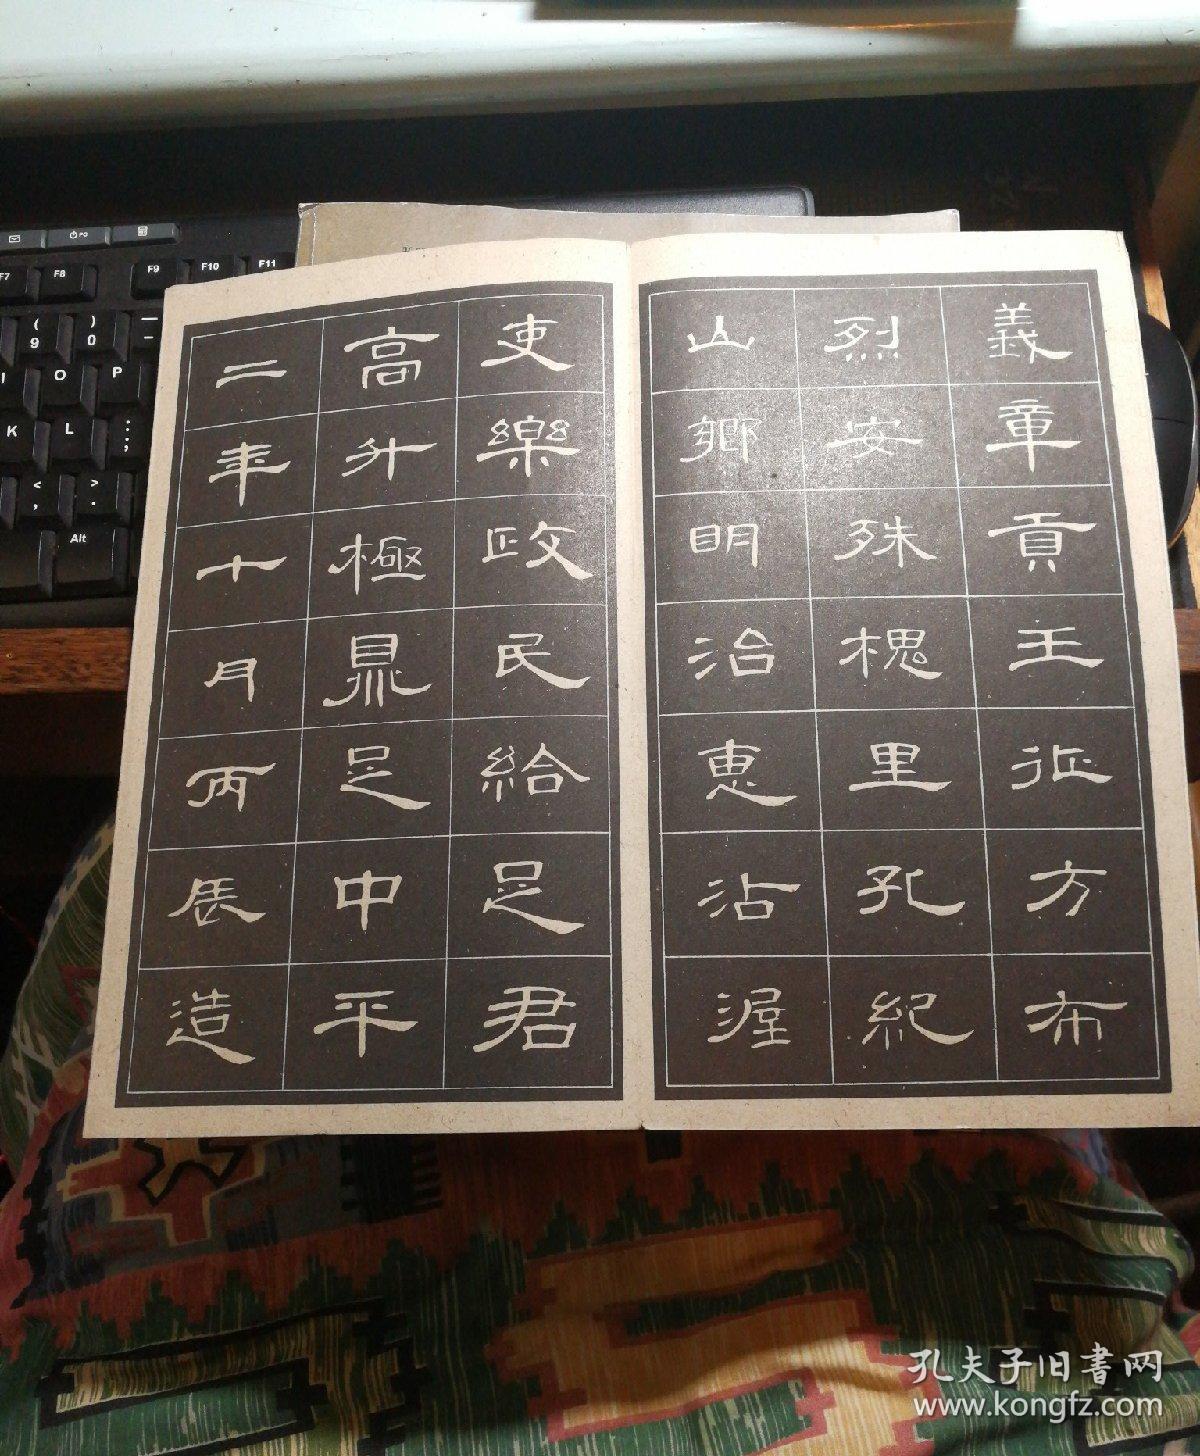 義章貢王征方布
烈安殊槐里孔紀
山鄉明治惠沾渥
吏樂政民給足君
高升極鼎足中平
二年十月丙辰造
F7
F8
F9
F10
F11
(
9
)
0
O
P
K
L
:
;
<
,
>
.
Alt
孔夫子旧書网
www.kongfz.com